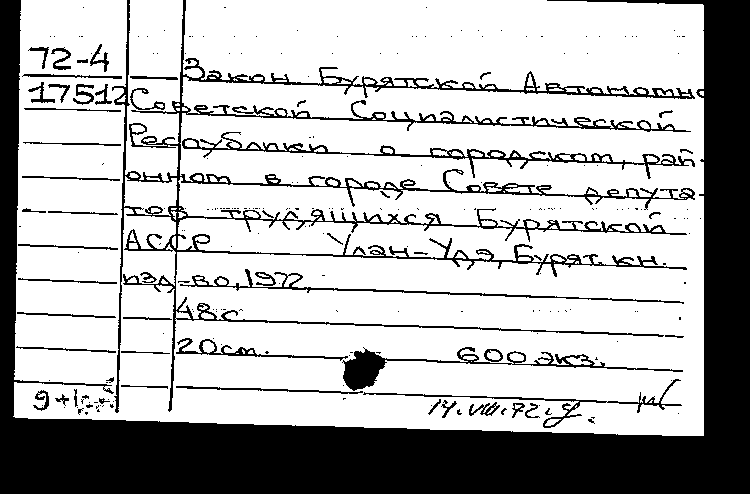 72-4 Закон Бурятской Автономно
17512 Советской Социалистической
Республики о городском, рай-
онном в городе Совете депута-
тов трудящихся Бурятской
АССР Улан-Удэ, Бурят. кн.
изд-во, 1972.
48 с.
20 см. 600 экз.
14.VIII.72.